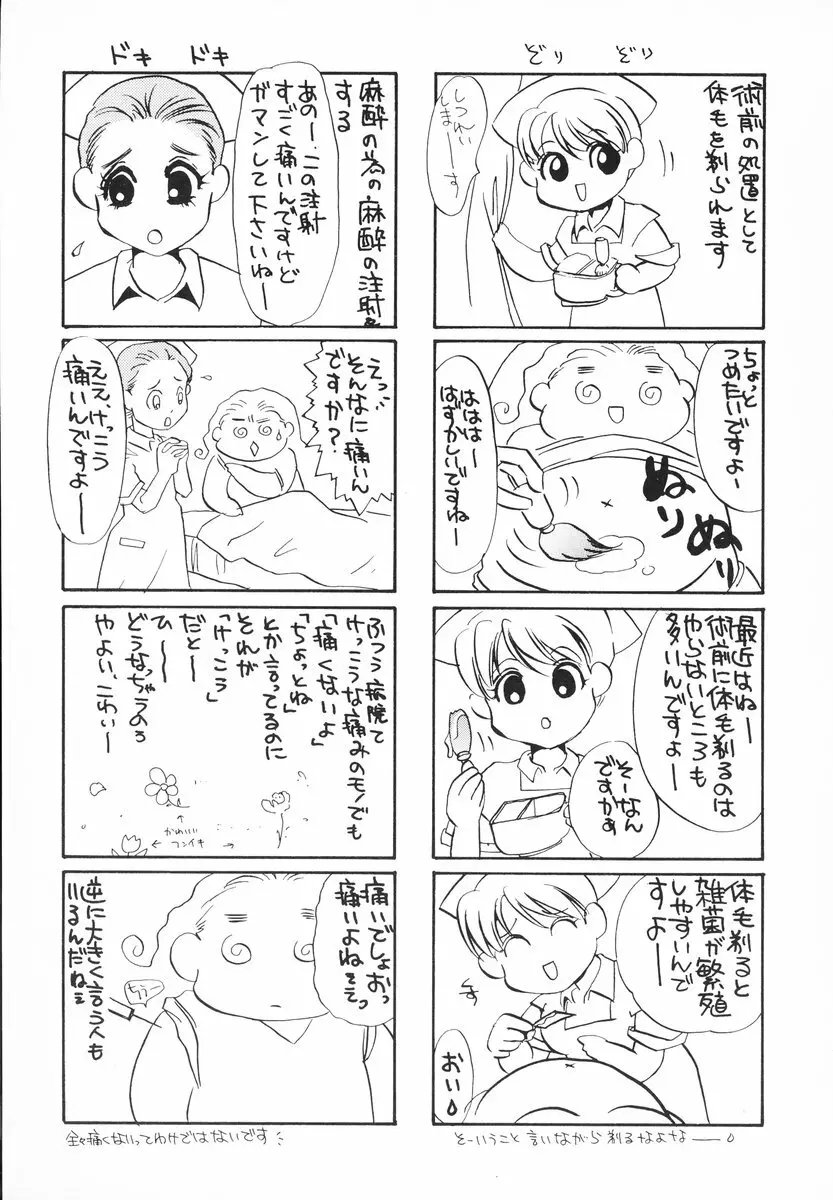 ぞり　ぞり
術前の処置として
体毛を剃られます
しつれい
しまーーす
ちょっと
つめたいですよー
ははは
はずかしいですねー
ぬり
ぬり
最近はねー
術前に体毛剃るのは
やらないところも
多いんですよー
そーなん
ですかぁ
体毛剃ると
雑菌が繁殖
しやすいんで
すよー
おい
そーいうこと言いながら剃るなよな――
ドキ　ドキ
麻酔の為の麻酔の注射を
する
あのー、この注射
すごく痛いんですけど
ガマンして下さいねー
えっ
そんなに痛いん
ですか？
ええ、けっこう
痛いんですよー
ふつう病院て
けっこうな痛みのモノでも
「痛くないよ」
「ちょっとね」
とか言ってるのに
それが
「けっこう」
だと～
ひ～～
どうなっちゃうのぉ
やよい、こわぃ～
かわいい
フンイキ
痛いでしょおっ
痛いよねぇそぞっ
逆に大きく言う人も
いるんだねぇ
全々痛くないってわけではないです